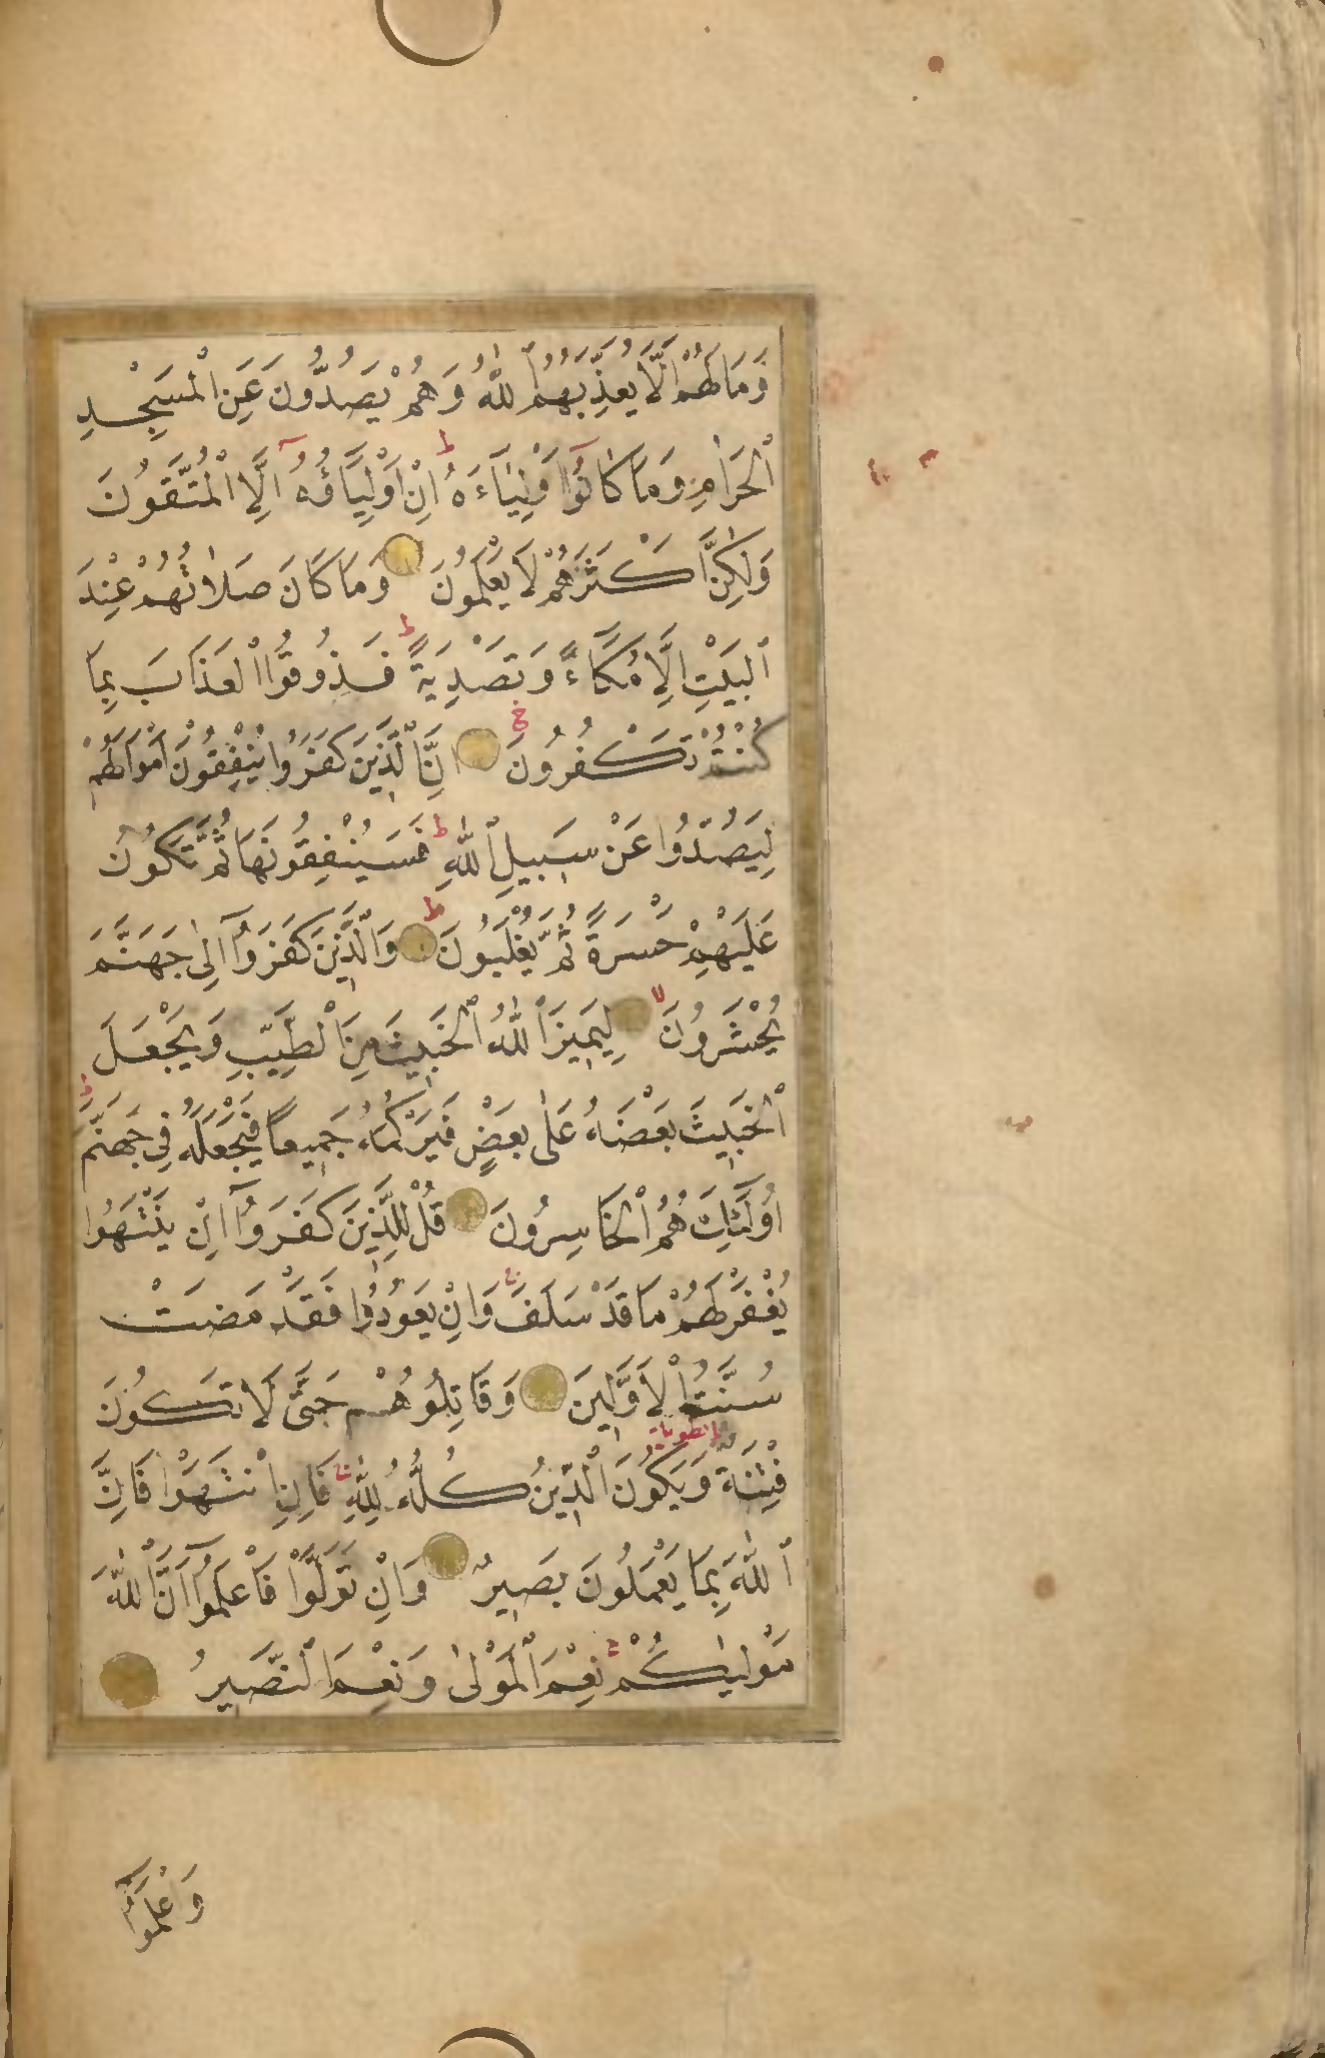 وَمَا لَهُمْ اَلَّا يُعَذِّبَهُمُ اللّٰهُ وَهُمْ يَصُدُّونَ عَنِ الْمَسْجِدِ
الْحَرَامِ وَمَا كَانُوا اَوْلِيَاءَهُ اِنْ اَوْلِيَاؤُهُ اِلَّا الْمُتَّقُونَ
وَلٰكِنَّ اَكْثَرَهُمْ لَا يَعْلَمُونَ وَمَا كَانَ صَلَاتُهُمْ عِنْدَ
الْبَيْتِ اِلَّا مُكَاءً وَتَصْدِيَةً فَذُوقُوا الْعَذَابَ بِمَا
كُنْتُمْ تَكْفُرُونَ اِنَّ الَّذِينَ كَفَرُوا يُنْفِقُونَ اَمْوَالَهُمْ
لِيَصُدُّوا عَنْ سَبِيلِ اللّٰهِ فَسَيُنْفِقُونَهَا ثُمَّ تَكُونُ
عَلَيْهِمْ حَسْرَةً ثُمَّ يُغْلَبُونَ وَالَّذِينَ كَفَرُوا اِلٰى جَهَنَّمَ
يُحْشَرُونَ لِيَمِيزَ اللّٰهُ الْخَبِيثَ مِنَ الطَّيِّبِ وَيَجْعَلَ
الْخَبِيثَ بَعْضَهُ عَلٰى بَعْضٍ فَيَرْكُمَهُ جَمِيعًا فَيَجْعَلَهُ فِي جَهَنَّمَ
اُولٰئِكَ هُمُ الْخَاسِرُونَ قُلْ لِلَّذِينَ كَفَرُوا اِنْ يَنْتَهُوا
يُغْفَرْ لَهُمْ مَا قَدْ سَلَفَ وَاِنْ يَعُودُوا فَقَدْ مَضَتْ
سُنَّتُ الْاَوَّلِينَ وَقَاتِلُوهُمْ حَتّٰى لَا تَكُونَ
فِتْنَةٌ وَيَكُونَ الدِّينُ كُلُّهُ لِلّٰهِ فَاِنِ انْتَهَوْا فَاِنَّ
اللّٰهَ بِمَا يَعْمَلُونَ بَصِيرٌ وَاِنْ تَوَلَّوْا فَاعْلَمُوا اَنَّ اللّٰهَ
مَوْلٰيكُمْ نِعْمَ الْمَوْلٰى وَنِعْمَ النَّصِيرُ
وَاعْلَمُوا